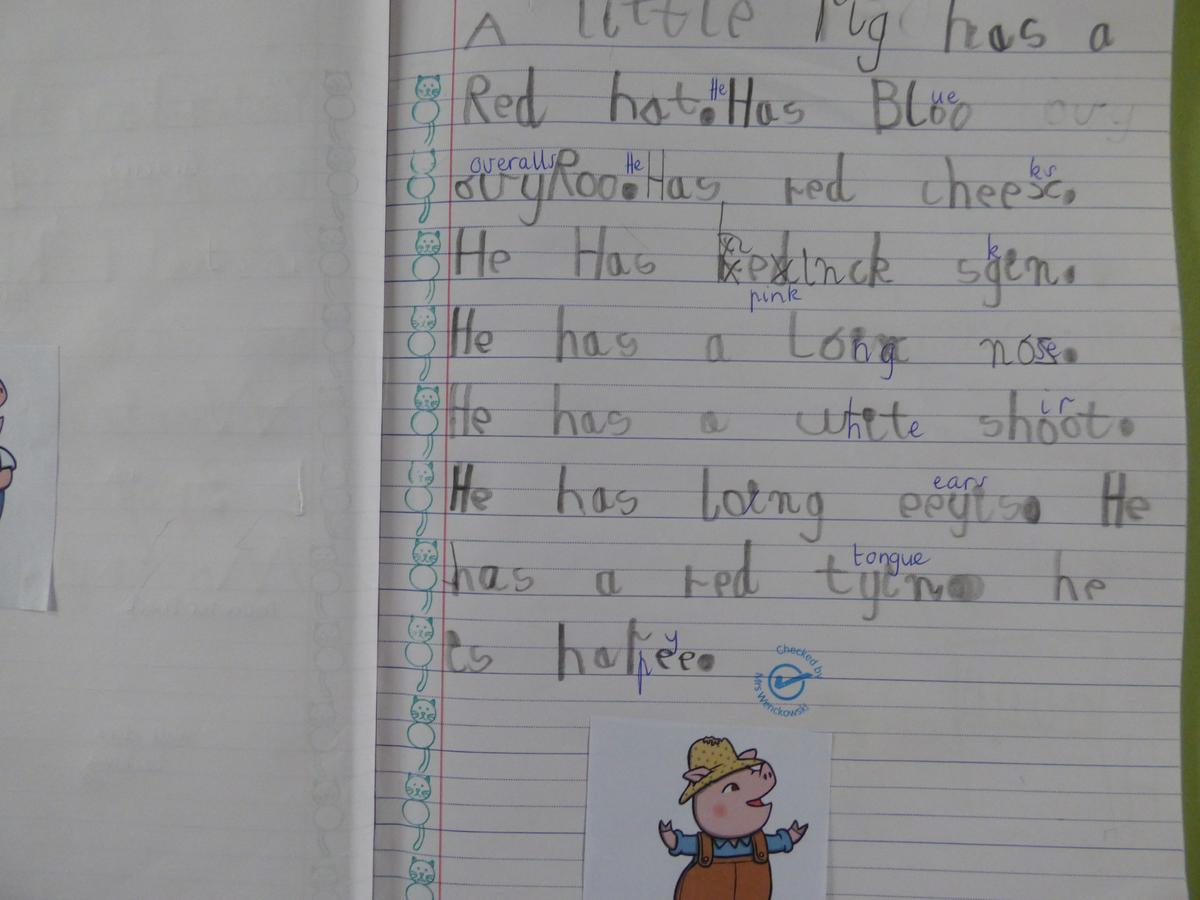 A little Pig has a
Red hat. He Has Bloo ue ovy
ovyRoo. overalls He Has red cheesc. ks
He Has Redinck sgen. k
pink
He has a Long nose.
He has a white shoot. ir
He has loing eeyts. ears He
has a red tyin tongue he
is hapee. y
Checked by
Mrs Wenckowski